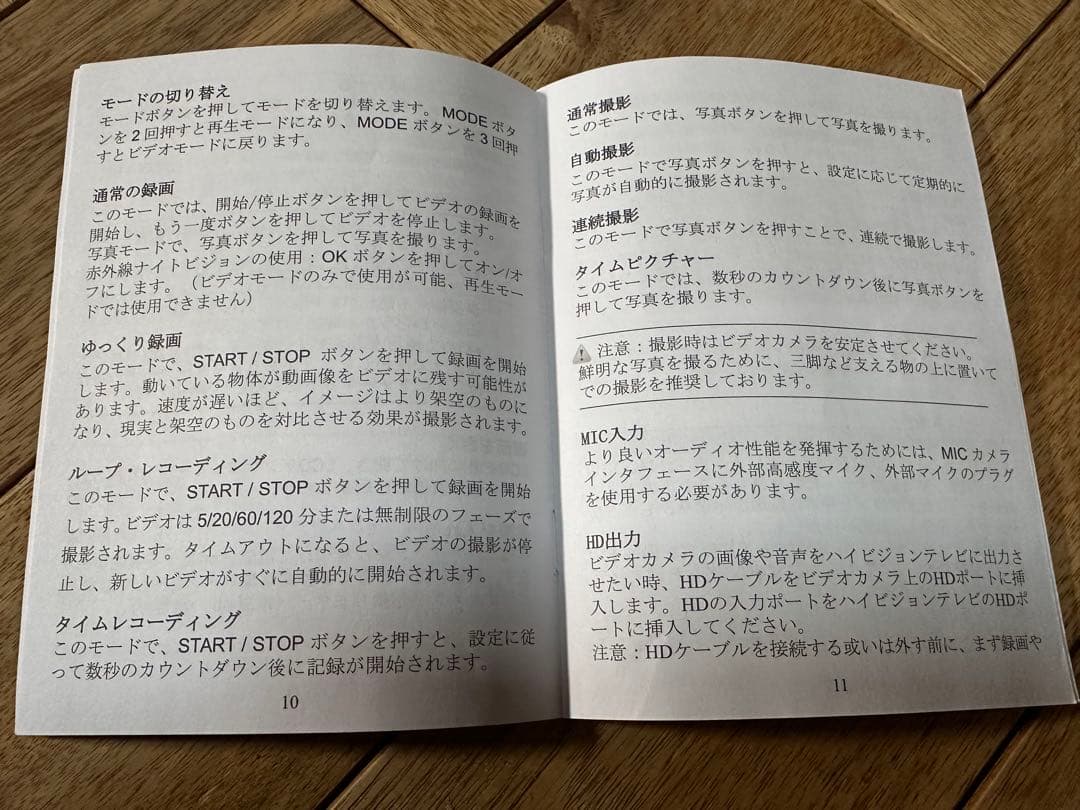 モードの切り替え
モードボタンを押してモードを切り替えます。MODE ボタ
ンを 2 回押すと再生モードになり、MODE ボタンを 3 回押
すとビデオモードに戻ります。
通常の録画
このモードでは、開始/停止ボタンを押してビデオの録画を
開始し、もう一度ボタンを押してビデオを停止します。
写真モードで、写真ボタンを押して写真を撮ります。
赤外線ナイトビジョンの使用：OK ボタンを押してオン/オ
フにします。（ビデオモードのみで使用が可能、再生モー
ドでは使用できません）
ゆっくり録画
このモードで、START / STOP ボタンを押して録画を開始
します。動いている物体が動画像をビデオに残す可能性が
あります。速度が遅いほど、イメージはより架空のものに
なり、現実と架空のものを対比させる効果が撮影されます。
ループ・レコーディング
このモードで、START / STOP ボタンを押して録画を開始
します。ビデオは 5/20/60/120 分または無制限のフェーズで
撮影されます。タイムアウトになると、ビデオの撮影が停
止し、新しいビデオがすぐに自動的に開始されます。
タイムレコーディング
このモードで、START / STOP ボタンを押すと、設定に従
って数秒のカウントダウン後に記録が開始されます。
10
通常撮影
このモードでは、写真ボタンを押して写真を撮ります。
自動撮影
このモードで写真ボタンを押すと、設定に応じて定期的に
写真が自動的に撮影されます。
連続撮影
このモードで写真ボタンを押すことで、連続で撮影します。
タイムピクチャー
このモードでは、数秒のカウントダウン後に写真ボタンを
押して写真を撮ります。
注意：撮影時はビデオカメラを安定させてください。
鮮明な写真を撮るために、三脚など支える物の上に置いて
での撮影を推奨しております。
MIC入力
より良いオーディオ性能を発揮するためには、MIC カメラ
インタフェースに外部高感度マイク、外部マイクのプラグ
を使用する必要があります。
HD出力
ビデオカメラの画像や音声をハイビジョンテレビに出力さ
せたい時、HDケーブルをビデオカメラ上のHDポートに挿
入します。HDの入力ポートをハイビジョンテレビのHDポ
ートに挿入してください。
注意：HDケーブルを接続する或いは外す前に、まず録画や
11